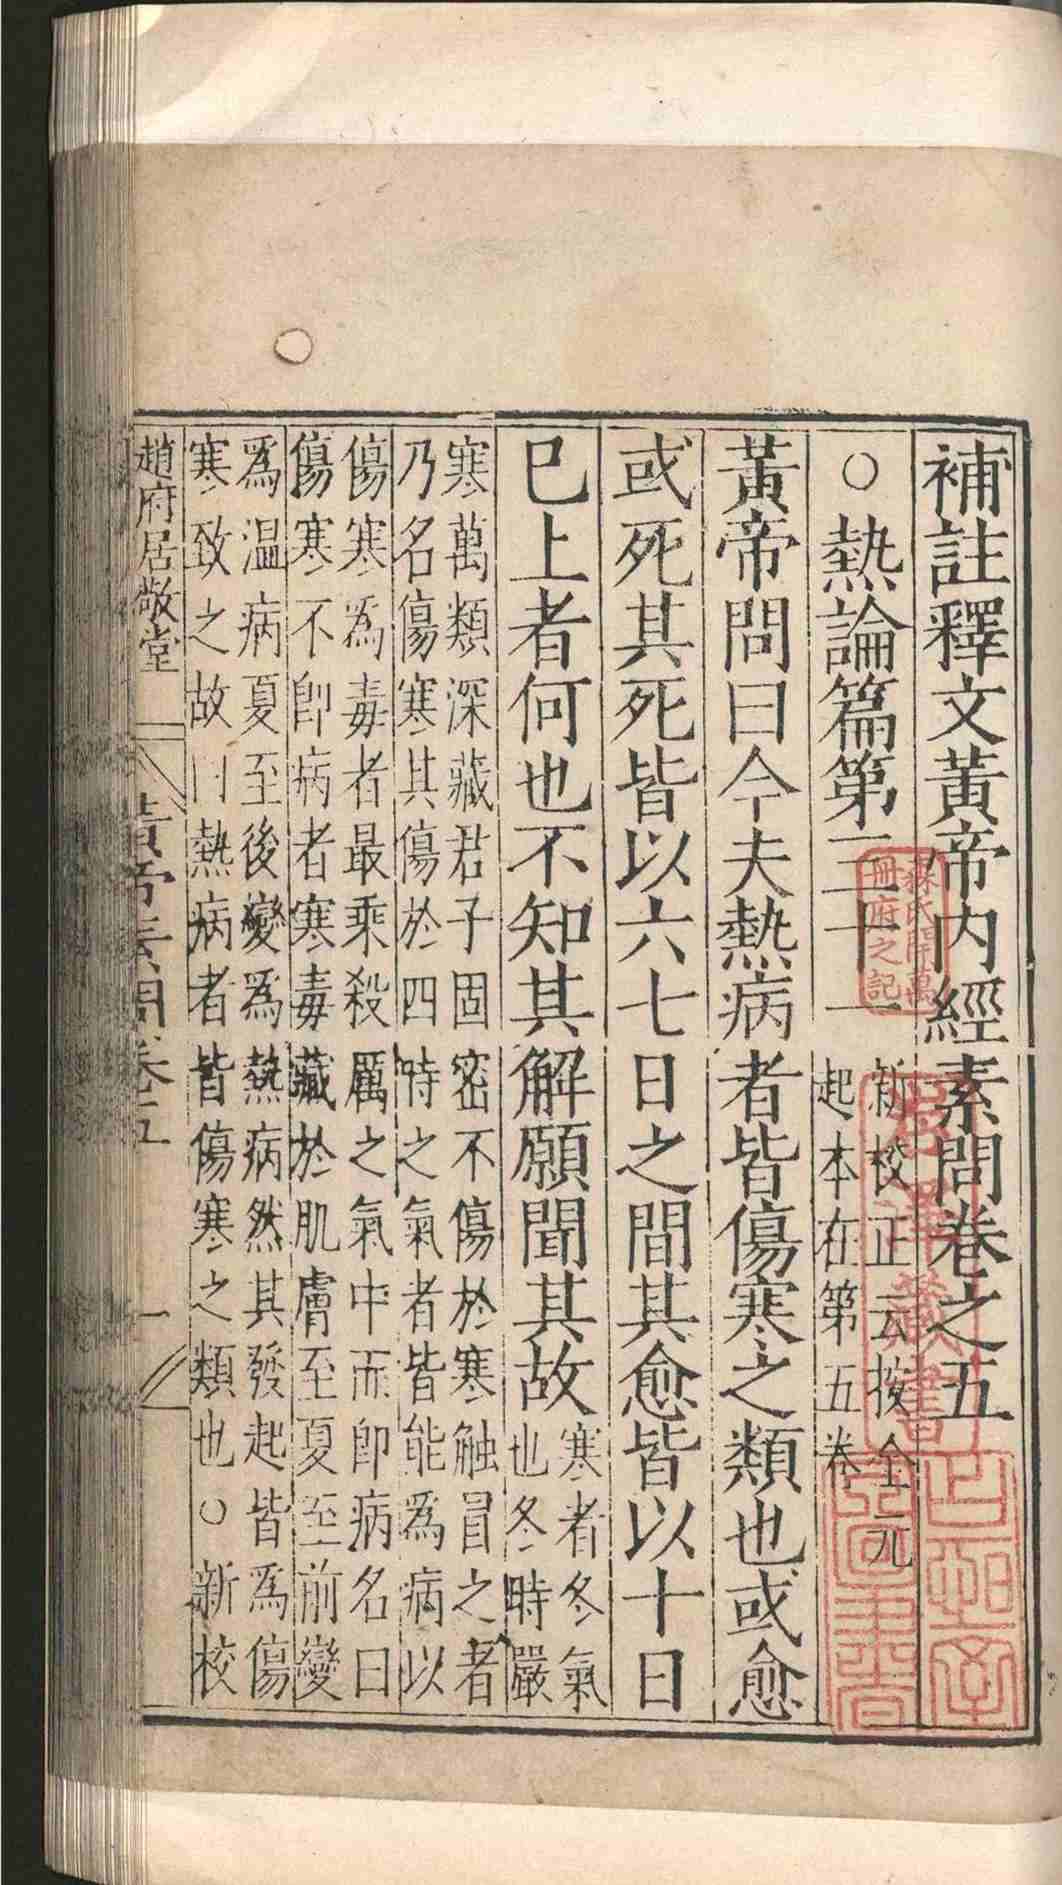 補註釋文黃帝內經素問卷之五
○熱論篇第三十一
新校正云按全元
起本在第五卷
黃帝問曰今夫熱病者皆傷寒之類也或愈
或死其死皆以六七日之間其愈皆以十日
已上者何也不知其解願聞其故
寒者冬氣
也冬時嚴
寒萬類深藏君子固密不傷於寒触冒之者
乃名傷寒其傷於四時之氣者皆能為病以
傷寒為毒者最乘殺厲之氣中而即病名曰
傷寒不即病者寒毒藏於肌膚至夏至前變
為温病夏至後變為熱病然其發起皆為傷
寒致之故曰熱病者皆傷寒之類也○新校
趙府居敬堂
黃帝素問卷五
一
森氏開萬
冊府之記